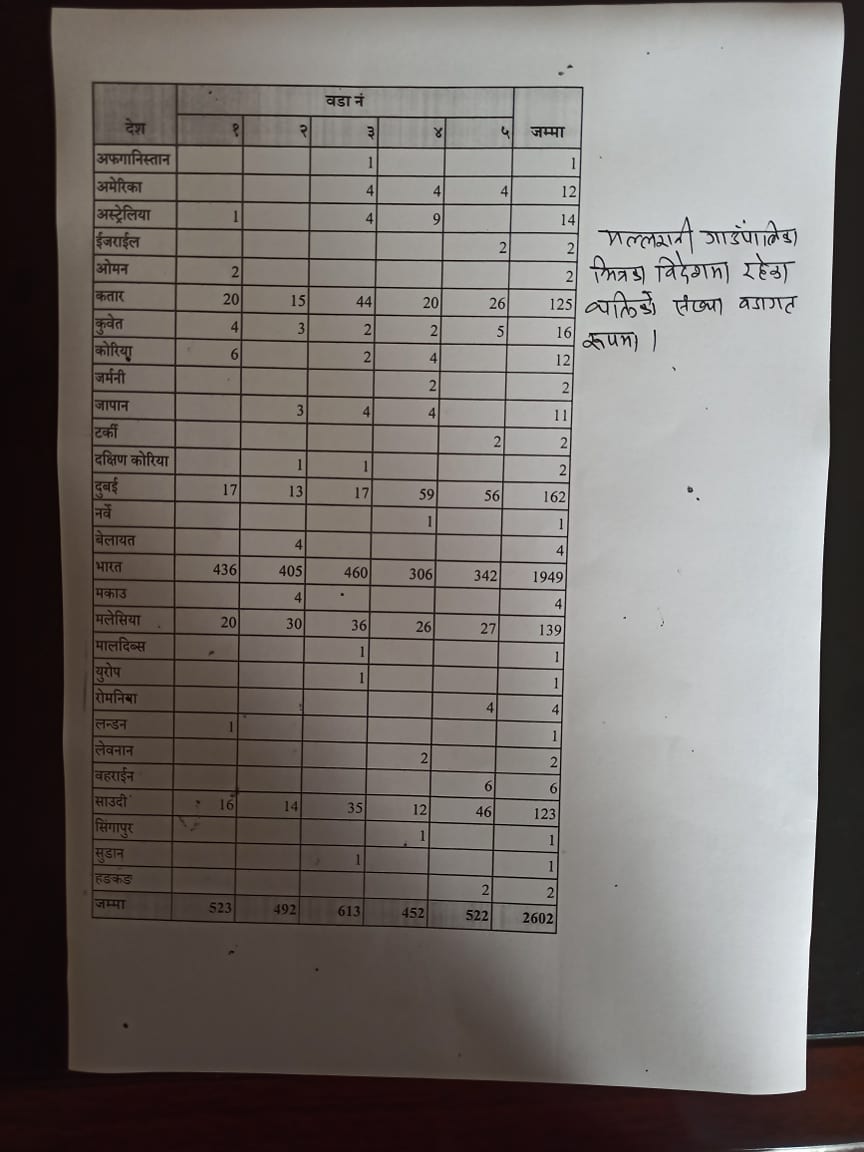 वडा नं
देश १ २ ३ ४ ५ जम्मा
अफगानिस्तान 1 1
अमेरिका 4 4 4 12
अस्ट्रेलिया 1 4 9 14
ईजराईल 2 2
ओमन 2 2
कतार 20 15 44 20 26 125
कुवेत 4 3 2 2 5 16
कोरिया 6 2 4 12
जर्मनी 2 2
जापान 3 4 4 11
टर्की 2 2
दक्षिण कोरिया 1 1 2
दुबई 17 13 17 59 56 162
नर्वे 1 1
बेलायत 4 4
भारत 436 405 460 306 342 1949
मकाउ 4 4
मलेसिया 20 30 36 26 27 139
मालदिब्स 1 1
युरोप 1 1
रोमनिया 4 4
लन्डन 1 1
लेवनान 2 2
वहराईन 6 6
साउदी 16 14 35 12 46 123
सिंगापुर 1 1
सुडान 1 1
हङकङ 2 2
जम्मा 523 492 613 452 522 2602
मल्लरानी गाउँपालिका
भित्रका विदेशमा रहेका
व्यक्तिको संख्या वडागत
रूपमा ।